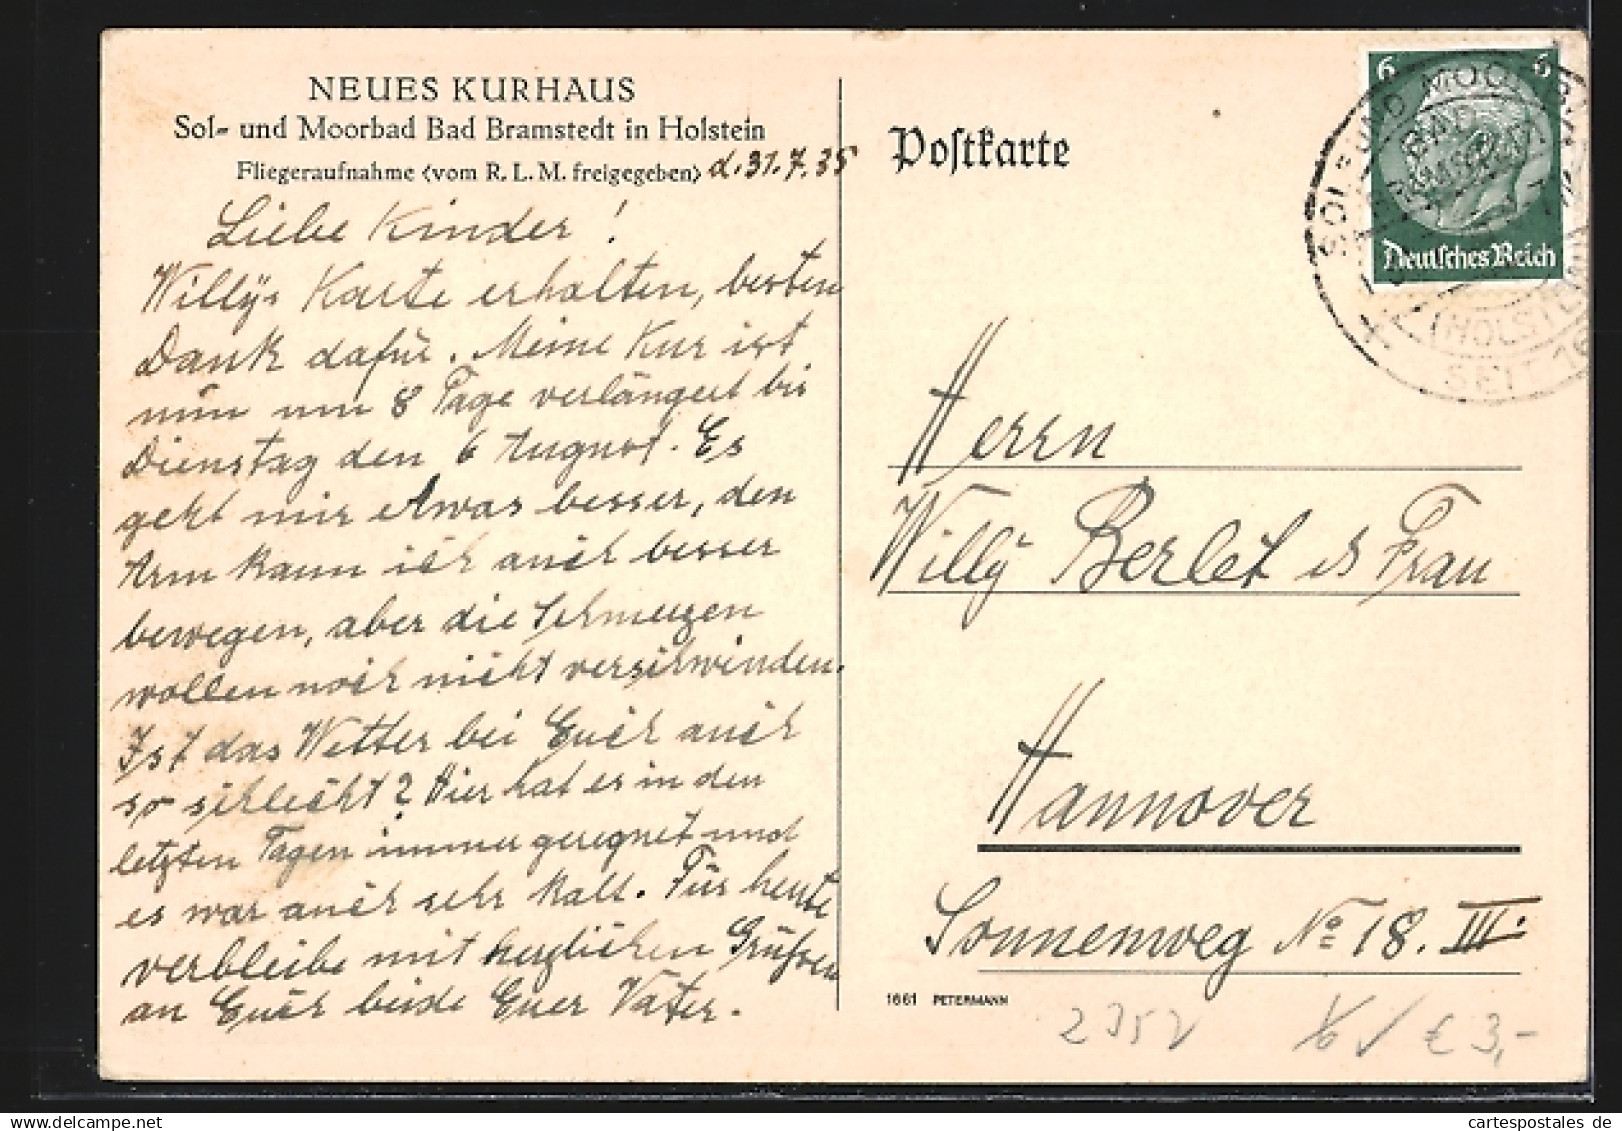 NEUES KURHAUS
Sol- und Moorbad Bad Bramstedt in Holstein
Fliegeraufnahme (vom R. L. M. freigegeben)
d. 31.7.35
Liebe Kinder!
Willys Karte erhalten, besten
Dank dafür. Meine Kur ist
nun um 8 Tage verlängert bis
Dienstag den 6 August. Es
geht mir etwas besser, den
Arm kann ich auch besser
bewegen, aber die Schmerzen
wollen noch nicht verschwinden.
Ist das Wetter bei Euch auch
so schlecht? Hier hat es in den
letzten Tagen immer geregnet und
es war auch sehr kalt. Für heute
verbleibe mit herzlichen Grüßen
an Euch beide Euer Vater.
Postkarte
6 6
Deutsches Reich
SOL- UND MOORBAD
BAD BRAMSTEDT
(HOLSTEIN)
SEIT
Herrn
Willy Berlet & Frau
Hannover
Sonnenweg No 18. III.
1661 PETERMANN
2352
€ 3,-
cartespostales de